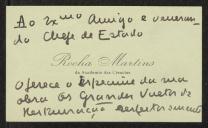 Ao Exmo Amigo e veneran-
do Chefe de Estado
Rocha Martins
da Academia das Ciencias
oferece o especime da sua
obra Os Grandes Vultos da
Restauração